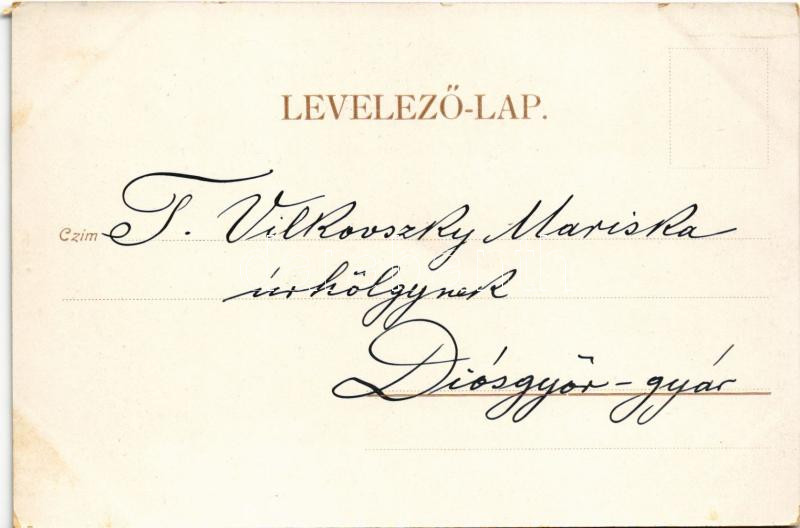 LEVELEZŐ-LAP.
Czim T. Vilkovszky Mariska
úrhölgynek
Diósgyőr-gyár